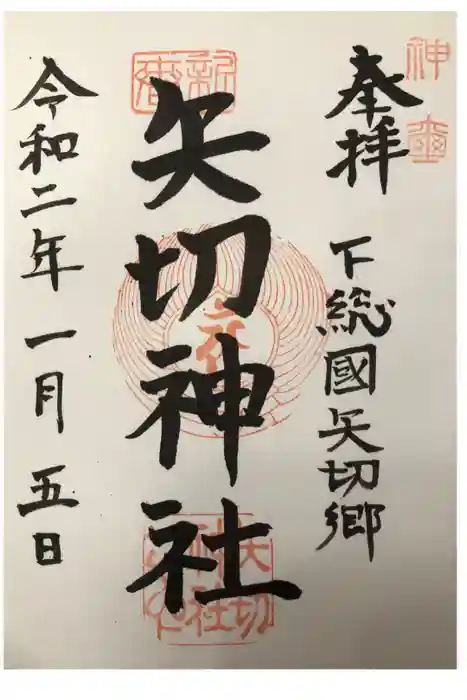 奉拝
下総國矢切郷
矢切神社
令和二年一月五日
矢切
神社